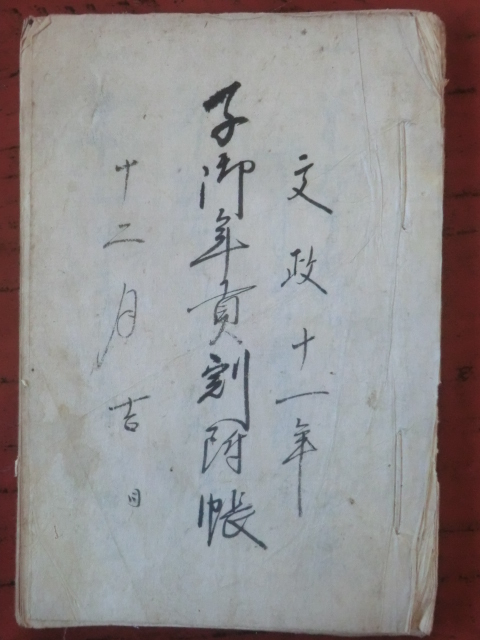 文政十一年
子御年貢割附帳
十二月吉日